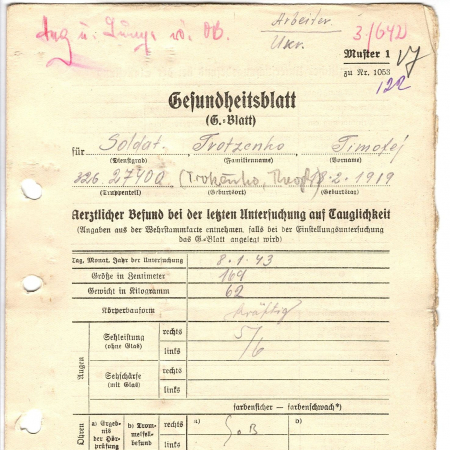 Arbeiter
Ukr.
3/642
Muster 1
zu Nr. 1053
122
Gesundheitsblatt
(G.-Blatt)
für Soldat. Trotzenko Timofej
(Dienstgrad) (Familienname) (Vorname)
326. 27400 8.2.1919
(Truppenteil) (Geburtsort) (Geburtstag)
Aerztlicher Befund bei der letzten Untersuchung auf Tauglichkeit
(Angaben aus der Wehrstammkarte entnehmen, falls bei der Einstellungsuntersuchung
das G.-Blatt angelegt wird)
Tag, Monat, Jahr der Untersuchung 8.1.43
Größe in Zentimeter 164
Gewicht in Kilogramm 62
Körperbauform kräftig
Augen
Sehleistung (ohne Glas) rechts 5/
links 6
Sehschärfe (mit Glas) rechts
links
farbensicher — farbenschwach*)
Ohren
a) Ergebnis der Hörprüfung
b) Trommelfellbefund
rechts a) b)
links